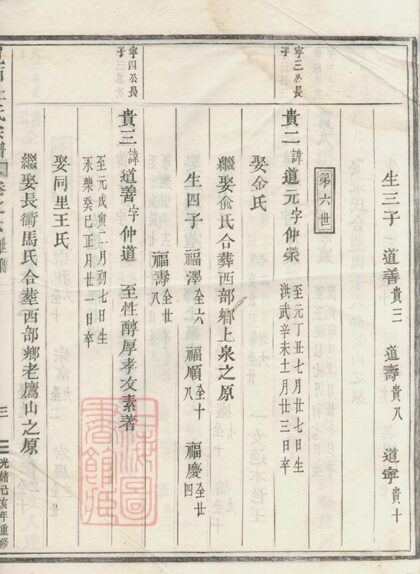 生三子 道善貴三 道壽貴八 道寧貴十
第六世
寧三公長子
貴二 諱道元字仲榮 至元丁丑七月廿七日生 洪武辛未十一月廿三日卒
娶金氏
繼娶俞氏合葬西部鄉上泉之原
生四子 福澤仝六 福順仝十八 福慶仝廿
福壽仝廿八
寧四公長子
貴三 諱道善字仲道 至性醇厚孝友素著
至元戊寅二月初七日生
永樂癸巳正月廿一日卒
娶同里王氏
繼娶長衢馬氏合塟西部鄉老鷹山之原
氏宗譜
三
光緒己亥年重修
上海圖書館藏